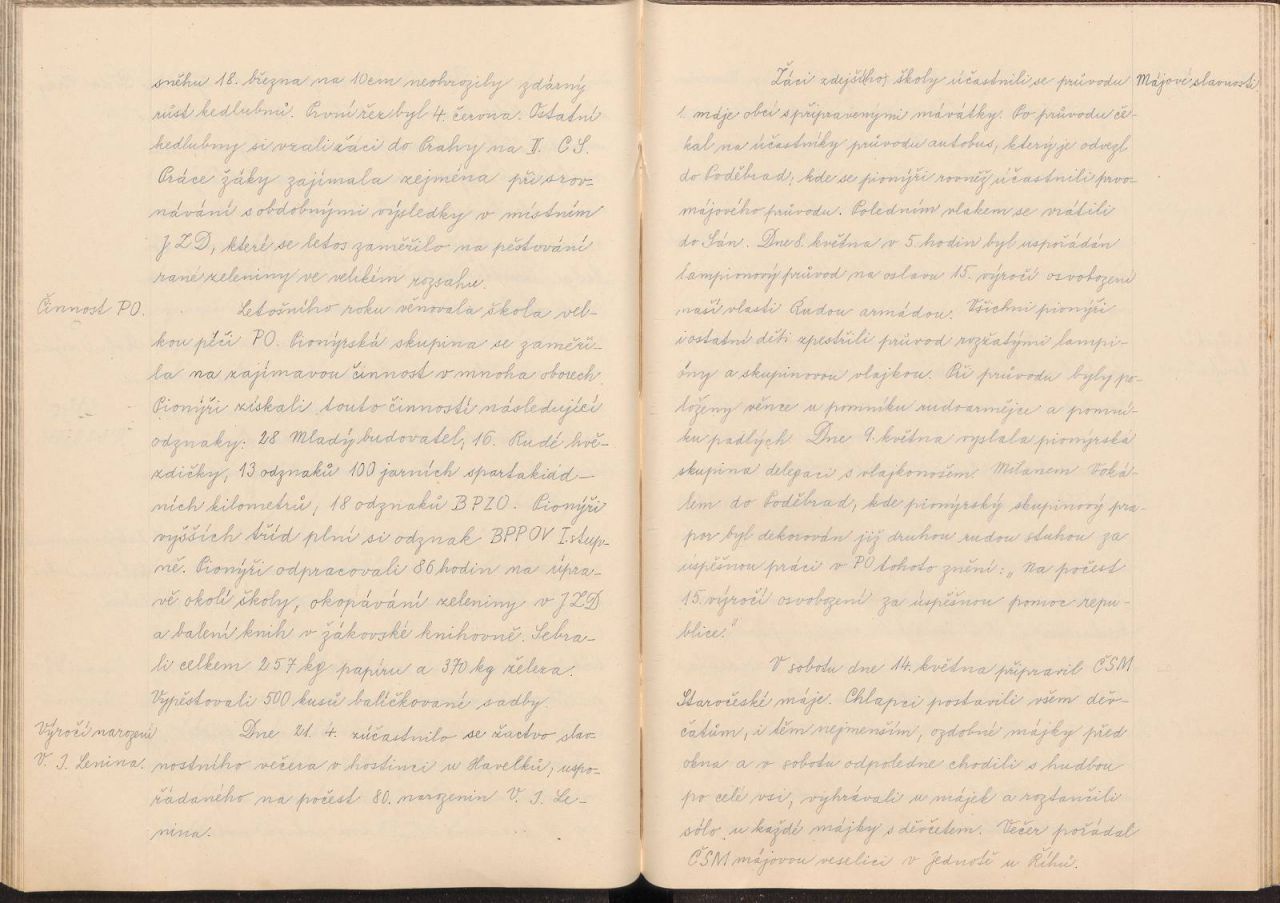 sněhu 18. března na 10cm neohrozily zdárný
růst kedlubnů. První řez byl 4. června. Ostatní
kedlubny si vzali žáci do Prahy na II. CS.
Práce žáky zajímala zejména při srov-
návání s obdobnými výsledky v místním
JZD, které se letos zaměřilo na pěstování
rané zeleniny ve velikém rozsahu.
Činnost PO.
Letošního roku věnovala škola vel-
kou péči PO. Pionýrská skupina se zaměři-
la na zajímavou činnost v mnoha oborech.
Pionýři získali touto činností následující
odznaky: 28 Mladý budovatel, 16. Rudé hvě-
zdičky, 13 odznaků 100 jarních spartakiád-
ních kilometrů, 18 odznaků BPZO. Pionýři
vyšších tříd plní si odznak BPPOV I. stup-
ně. Pionýři odpracovali 86 hodin na úpra-
vě okolí školy, okopávání zeleniny v JZD
a balení knih v žákovské knihovně. Sebra-
li celkem 257 kg papíru a 370 kg železa.
Vypěstovali 500 kusů balíčkované sadby.
Výročí narození
V. I. Lenina.
Dne 21. 4. zúčastnilo se žactvo slav-
nostního večera v hostinci u Havelků, uspo-
řádaného na počest 80. narozenin V. I. Le-
nina.
Žáci zdejšího školy účastnili se průvodu
Májové slavnosti
1. máje obcí s připravenými mávátky. Po průvodu če-
kal na účastníky průvodu autobus, který je odvezl
do Poděbrad, kde se pionýři rovněž účastnili prvo-
májového průvodu. Poledním vlakem se vrátili
do Sán. Dne 8. května v 5. hodin byl uspořádán
lampionový průvod na oslavu 15. výročí osvobození
naší vlasti Rudou armádou. Všichni pionýři
i ostatní děti zpestřili průvod rozžatými lampi-
óny a skupinovou vlajkou. Při průvodu byly po-
loženy věnce u pomníku rudoarmějce a pomní-
ku padlých. Dne 9. května vyslala pionýrská
skupina delegaci s vlajkonošem Milanem Voká-
lem do Poděbrad, kde pionýrský skupinový pra-
por byl dekorován již druhou rudou stuhou za
úspěšnou práci v PO tohoto znění: „Na počest
15. výročí osvobození za úspěšnou pomoc repu-
blice."
V sobotu dne 14. května připravil ČSM
Staročeské máje. Chlapci postavili všem děv-
čatům, i těm nejmenším, ozdobné májky před
okna a v sobotu odpoledne chodili s hudbou
po celé vsi, vyhrávali u májek a roztančili
sólo u každé májky s děvčetem. Večer pořádal
ČSM májovou veselici v Jednotě u Říhů.